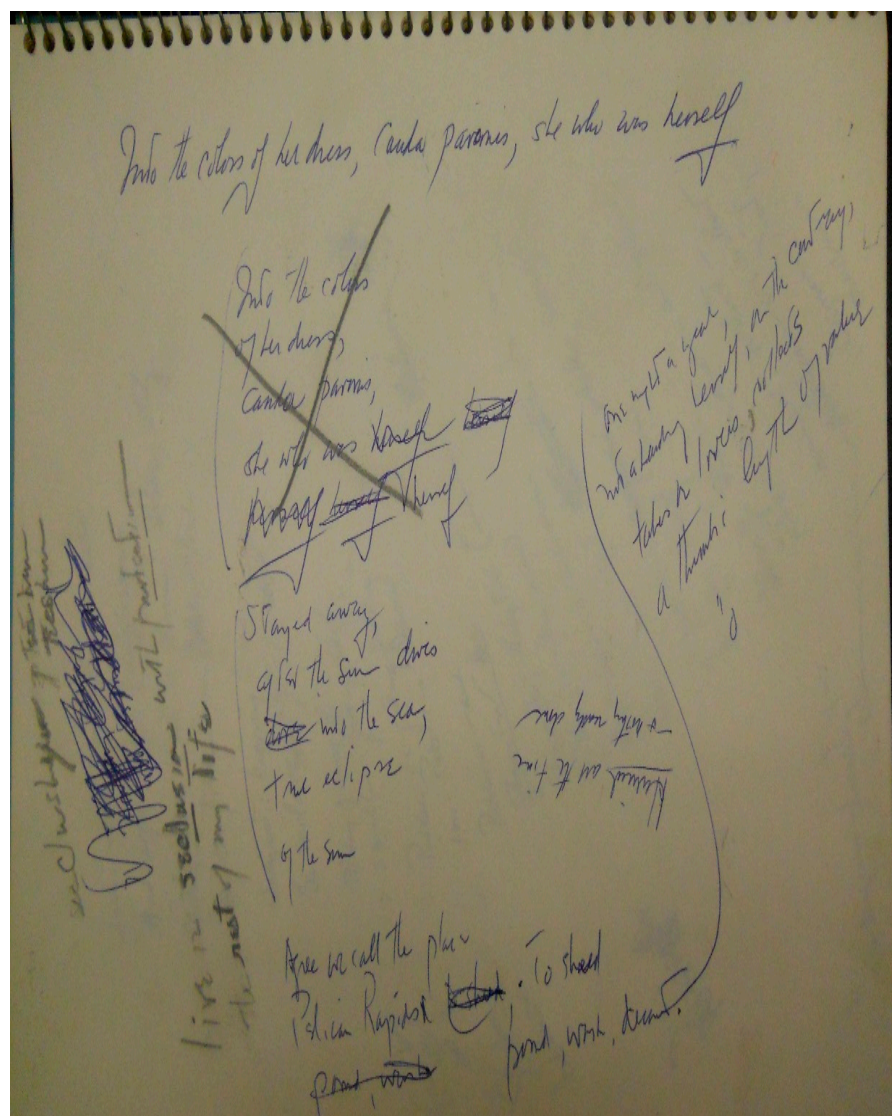 Into the colors of her dress, Cauda pavonis, she who was herself
Into the colors
of her dress,
Cauda pavonis,
she who was herself
herself herself herself
Stayed away,
after the sun dives
into the sea,
true eclipse
of the sun
Agree we call the place
Pelican Rapids. To shed
pond, work,
pond, work,
one night a year,
not a beauty herself, on the contrary,
takes on lovers, collects
a thumb's length of
all the time
really done
live in seclusion with
the rest of my life